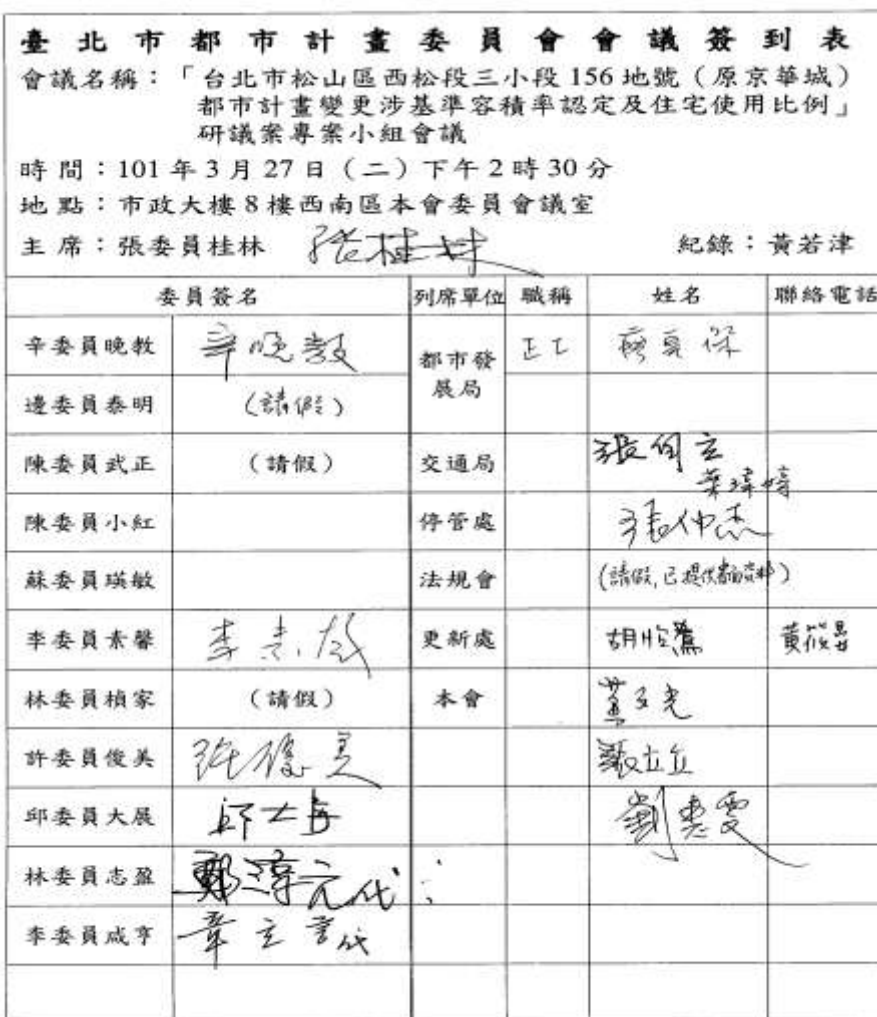 臺北市都市計畫委員會會議簽到表
會議名稱：「台北市松山區西松段三小段 156 地號（原京華城）
都市計畫變更涉基準容積率認定及住宅使用比例」
研議案專案小組會議
時 間：101 年 3 月 27 日（二）下午 2 時 30 分
地 點：市政大樓 8 樓西南區本會委員會議室
主 席：張委員桂林 張桂林 紀錄：黃若津
委員簽名 列席單位 職稱 姓名 聯絡電話
辛委員晚教 辛晚教 都市發
展局
邊委員泰明 (請假)
陳委員武正 （請假） 交通局
陳委員小紅 停管處 張仲杰
蘇委員瑛敏 法規會 (請假,已提供書面資料)
李委員素馨 更新處
林委員楨家 （請假） 本會
許委員俊美 許俊美 張立立
邱委員大展 邱大展 劉惠雯
林委員志盈
李委員咸亨